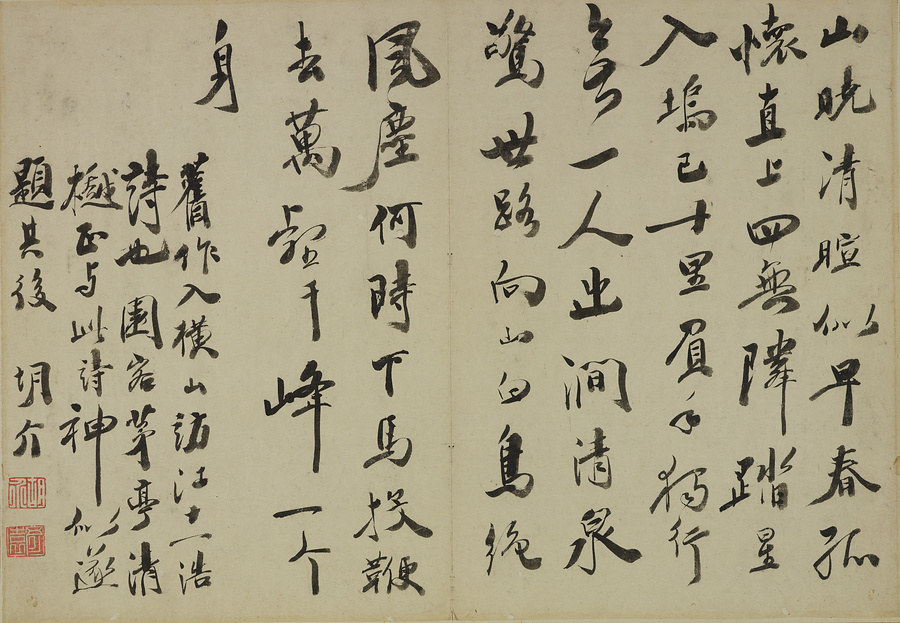 山曉清暄似早春孤
懷直上四無隣踏星
入塢已十里負手獨行
一人出澗清泉
驚世路向山白鳥絕
風塵何時下馬投鞭
去萬壑千峰一个
身
舊作入橫山訪江十一浩
詩也園客茅亭清
樾正与此詩神似遂
題其後 胡介